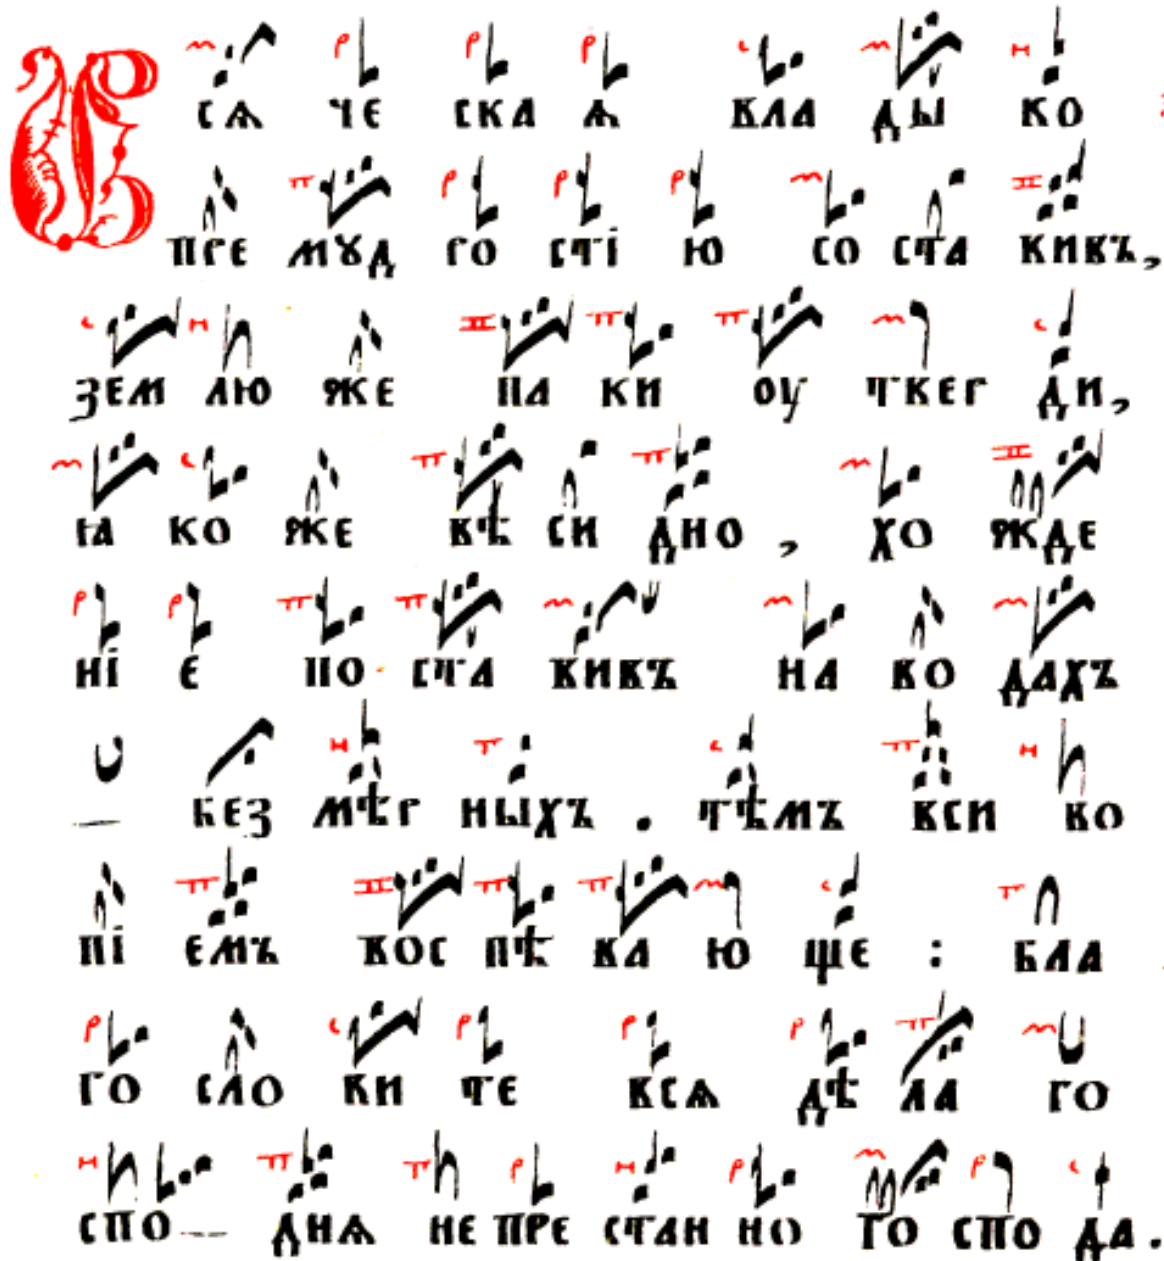 Всѧ че ска ѧ вла ды ко
пре мꙋд ро стї ю со ста вивъ,
зем лю же па ки оу твер ди,
ꙗ ко же вѣ си дно, хо жде
нї е по ста вивъ на во дахъ
— без мѣр ныхъ. тѣмъ вси во
пї емъ вос пѣ ва ю ще: бла
го сло ви те всѧ дѣ ла го
спо — днѧ не пре стан но го спо да.